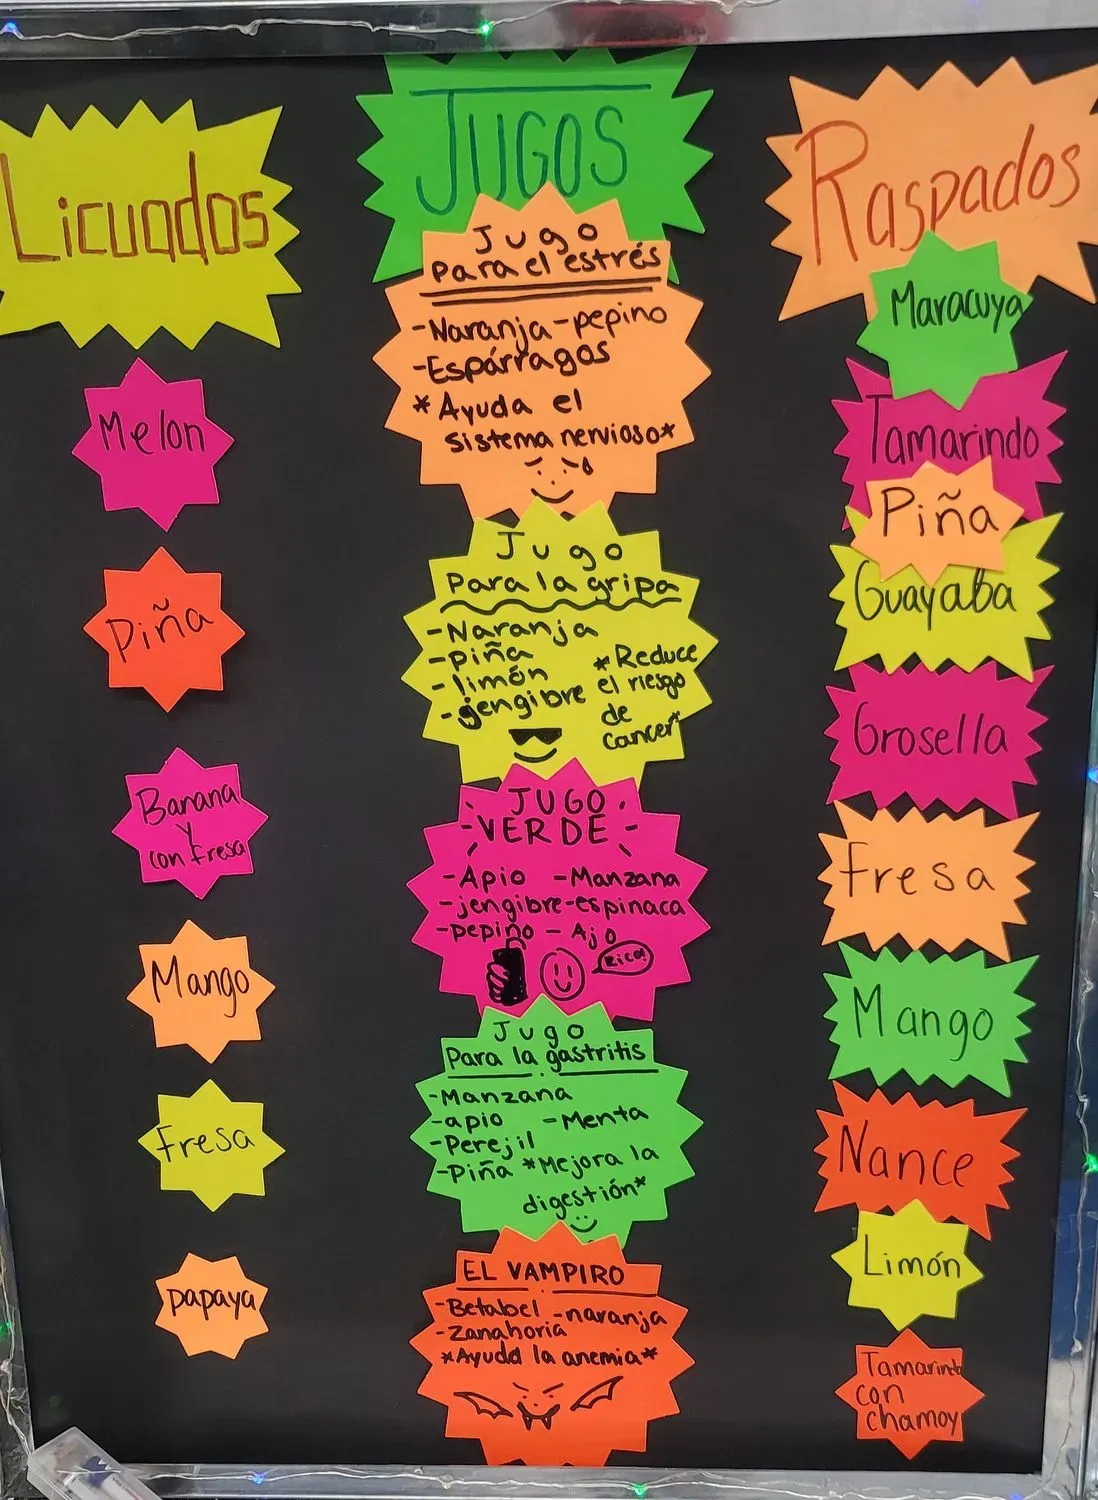 Licuados
Melon
Piña
Banana
y
con fresa
Mango
Fresa
papaya
JUGOS
Jugo
Para el estrés
-Naranja -pepino
-Espárragos
*Ayuda el
sistema nervioso*
Jugo
Para la gripa
-Naranja
-piña
-limón
-jengibre
*Reduce
el riesgo
de
cancer*
JUGO
-VERDE-
-Apio -Manzana
-jengibre -espinaca
-pepino -Ajo
Rico!
Jugo
Para la gastritis
-Manzana
-apio -Menta
-Perejil
-Piña *Mejora la
digestión*
EL VAMPIRO
-Betabel -naranja
-zanahoria
*Ayuda la anemia*
Raspados
Maracuya
Tamarindo
Piña
Guayaba
Grosella
Fresa
Mango
Nance
Limón
Tamarindo
con
chamoy